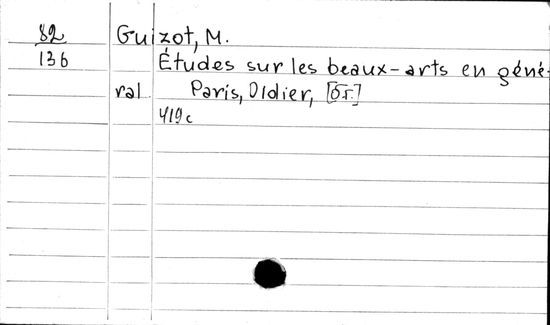 82 Guizot, M.
136 Études sur les beaux-arts en géné-
ral Paris, Didier, [б.г.]
419 с